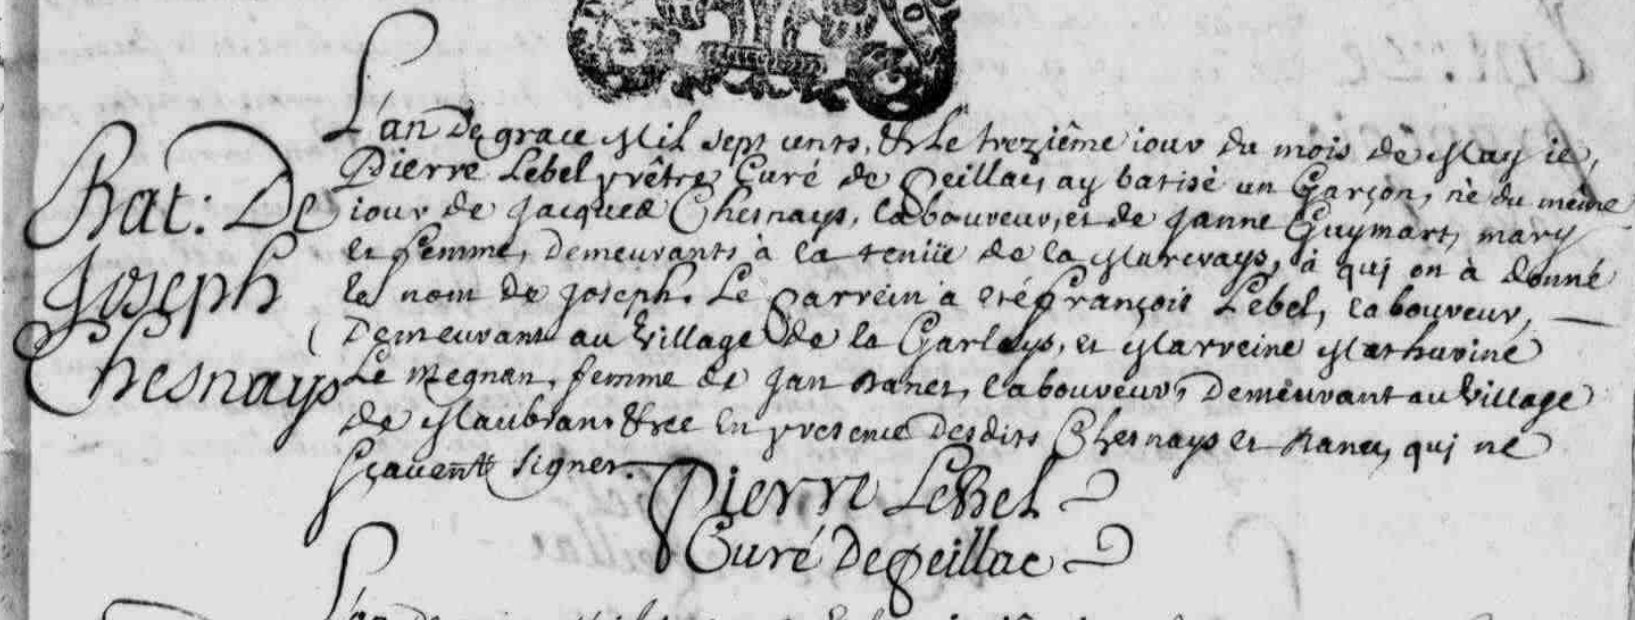 Bat: De
Joseph
Chesnays
L'an De grace Mil sept cents, & Le treziême iour du mois de May ie,
Pierre Lebel prêtre Curé de Peillac, ay batisé un Garçon, né du même
iour de Jacques Chesnays, laboureur, et de Janne Guymart, mary
et femme, Demeurants à la teniie de la Marevays, à qui on à donné
le nom de Joseph. Le Parrein à eté François Lebel, laboureur,
Demeurant au Village de la Garlays, et Marreine Mathurine
Le Megnan, femme de Jan Danet, laboureur, Demeurant au Village
de en presence Desdits Chesnays et qui ne
sçavent signer.
Pierre LeBel
Curé De Peillac
L'an